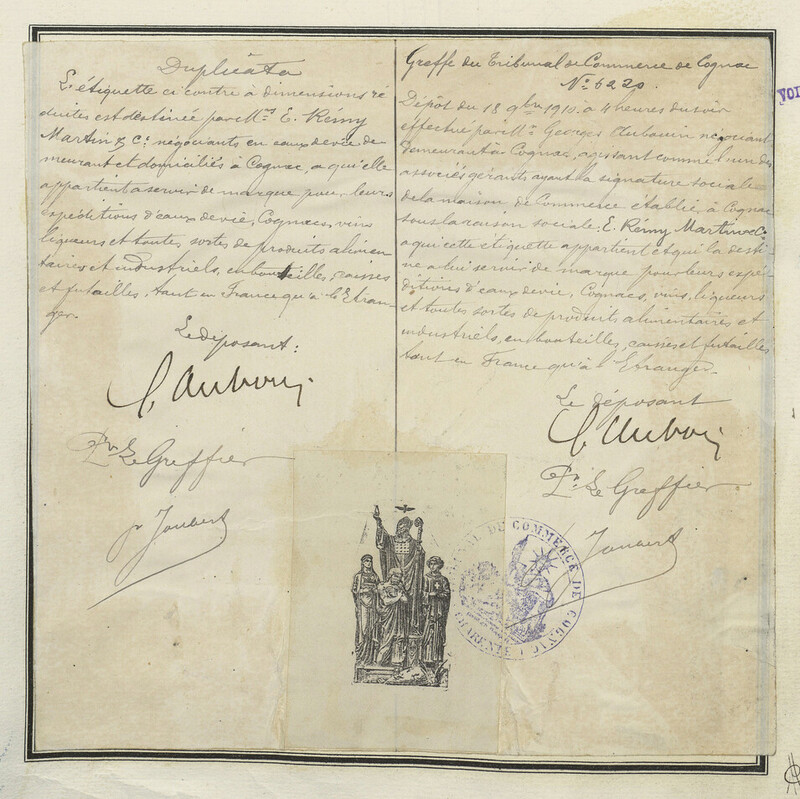 Duplicata
L'étiquette ci contre à dimensions ré
duites est destinée par MM. E. Rémy
Martin & Co. négociants en eaux de vie de
meurant et domiciliés à Cognac, a qu'elle
appartient à servir de marque pour leurs
expéditions d'eaux de vie, Cognacs, vins
liqueurs et toutes sortes de produits alimen
taires et industriels, en bouteilles, caisses
et futailles, tant en France qu'à l'Etran-
ger.
Le déposant:
G. Auboin
Pr. Le Greffier
Joubert
Greffe du Tribunal de Commerce de Cognac
No. 6220.
Dépôt du 18 9bre 1910 à 4 heures du soir
effectué par Mr. Georges Auboin négociant
demeurant à Cognac, agissant comme l'un des
associés gérants ayant la signature sociale
de la maison de Commerce établie à Cognac
sous la raison sociale: E. Rémy Martin & Co.
a qui cette etiquette appartient et qui la desti
ne à lui servir de marque pour leurs expé
ditions d'eaux de vie, Cognacs, vins, liqueurs
et toutes sortes de produits alimentaires et
industriels, en bouteilles, caisses et futailles
tant en France qu'à l'Etranger.
Le déposant
G. Auboin
Pr. Le Greffier
Joubert
TRIBUNAL DU COMMERCE DE COGNAC
CHARENTE
VOI